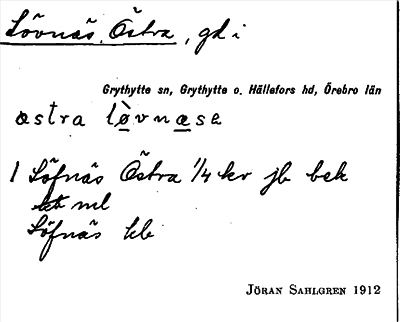 Lövnäs, Östra, gd i
Grythytte sn, Grythytte o. Hällefors hd, Örebro län
östra lövnäsa
1 Löfnäs Östra 1/4 kr jb bek
ml
Löfnäs kb
JÖRAN SAHLGREN 1912